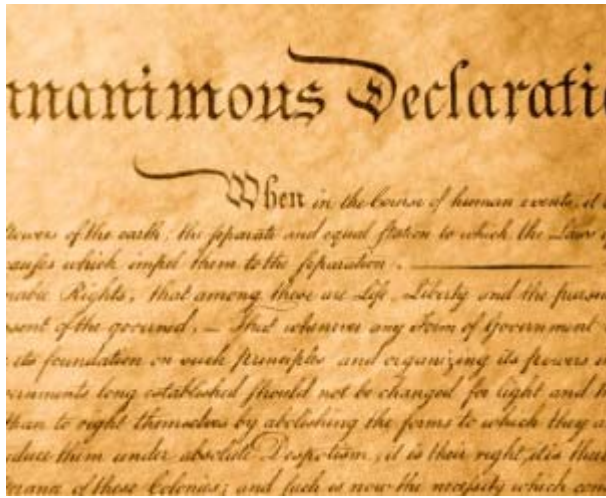 nanimous Declaratio
When in the Course of human events, it
Powers of the earth, the separate and equal station to which the Laws
causes which impel them to the separation.
nable Rights, that among these are Life, Liberty and the pursu
sent of the governed, — That whenever any Form of Government
its foundation on such principles and organizing its powers
vernments long established should not be changed for light and
than to right themselves by abolishing the forms to which they a
educe them under absolute Despotism, it is their right, it is thei
erance of these Colonies; and such is now the necessity which con